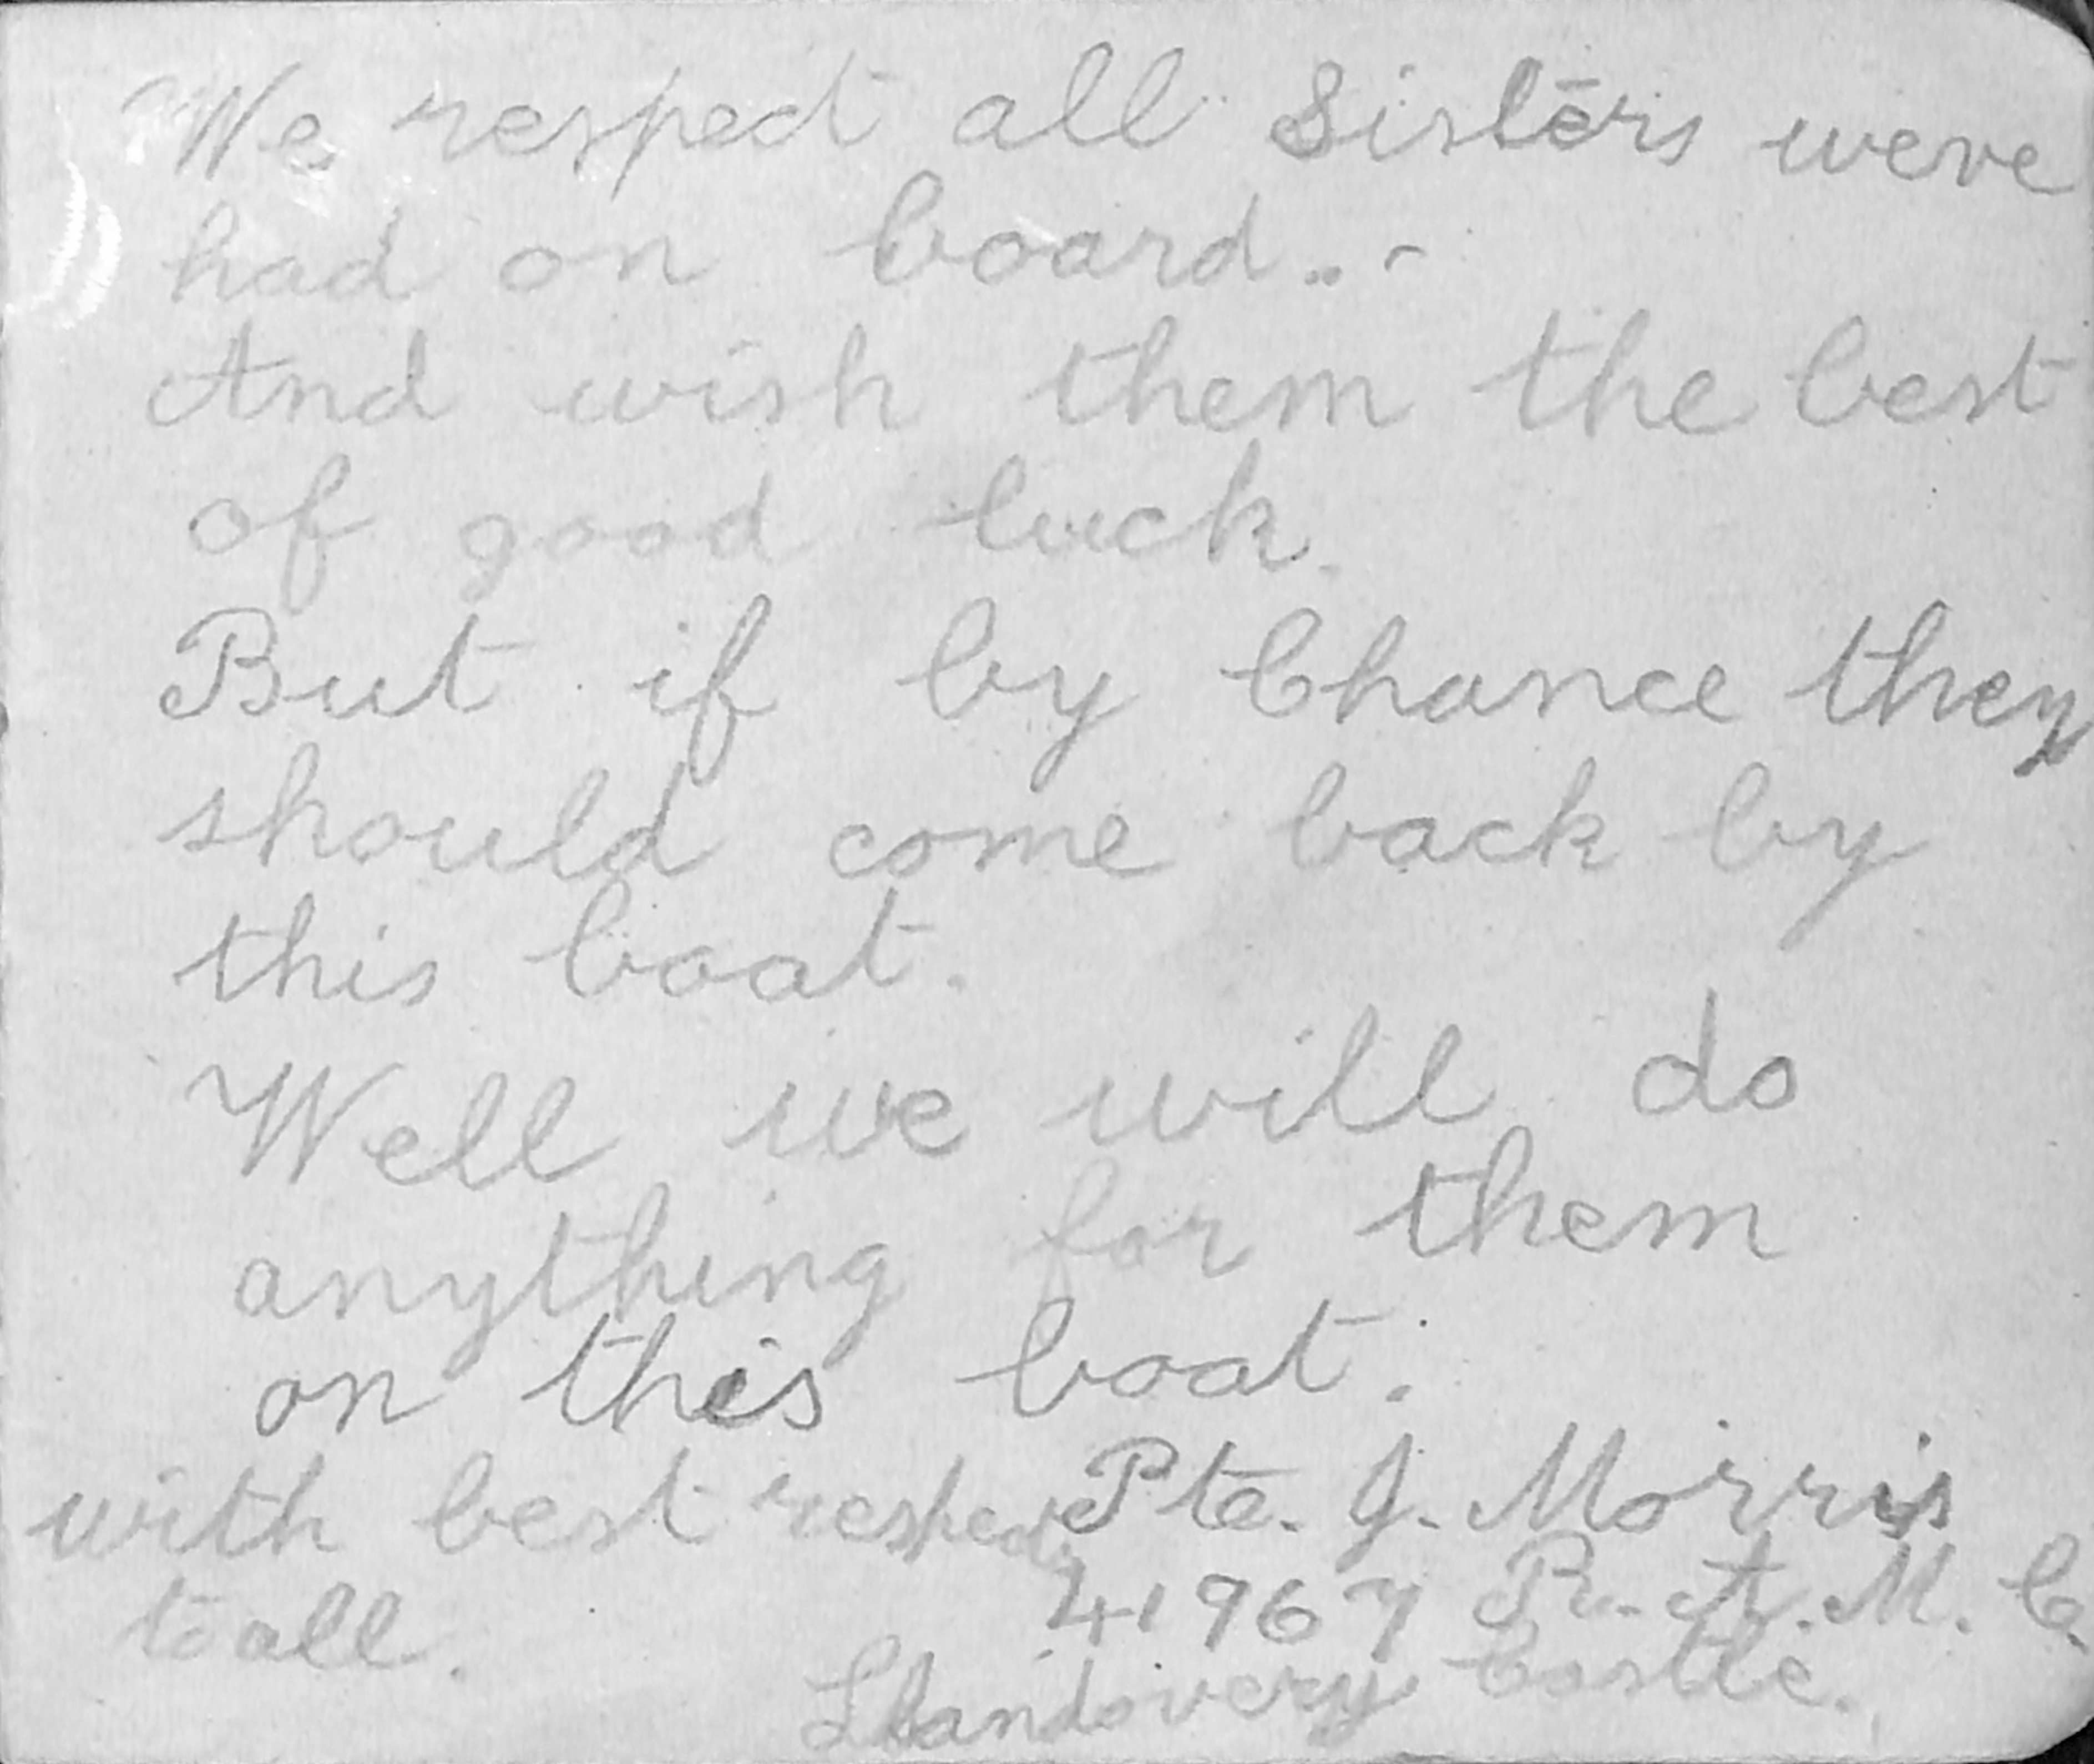 We respect all Sisters weve
had on board..-
And wish them the best
of good luck.
But if by Chance they
should come back by
this boat.
Well we will do
anything for them
on this boat.
with best respects Pte. J. Morris
to all. 41967 R.A.M.C.
Llandovery Castle.